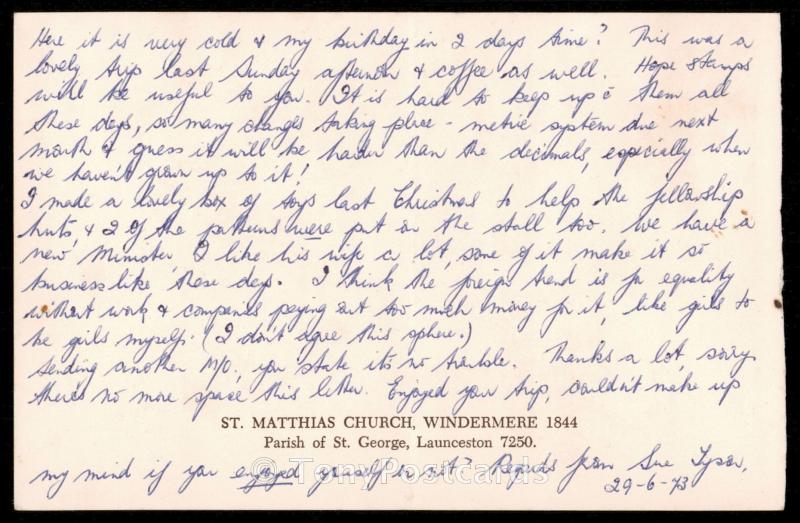 Here it is very cold & my birthday in 2 days time? This was a
lovely trip last Sunday afternoon & coffee as well. Hope stamps
will be useful to you. It is hard to keep up c̄ them all
these days, so many changes taking place - metric system due next
month & guess it will be harder than the decimals, especially when
we haven't grown up to it!
I made a lovely box of toys last Christmas to help the fellowship
huts, & 2 of the patterns were put on the stall too. We have a
new Minister, I like his wife a lot, some of it make it so
business like these days. I think the foreign trend is for equality
without work & companies paying out too much money for it, like girls to
be girls myself. (I don't agree this sphere.)
Sending another M/O, you state it's no trouble. Thanks a lot, sorry
there's no more space this letter. Enjoyed your trip, couldn't make up
ST. MATTHIAS CHURCH, WINDERMERE 1844
Parish of St. George, Launceston 7250.
my mind if you enjoyed yourself or not? Regards from Sue
29-6-73
© TonyPostcards